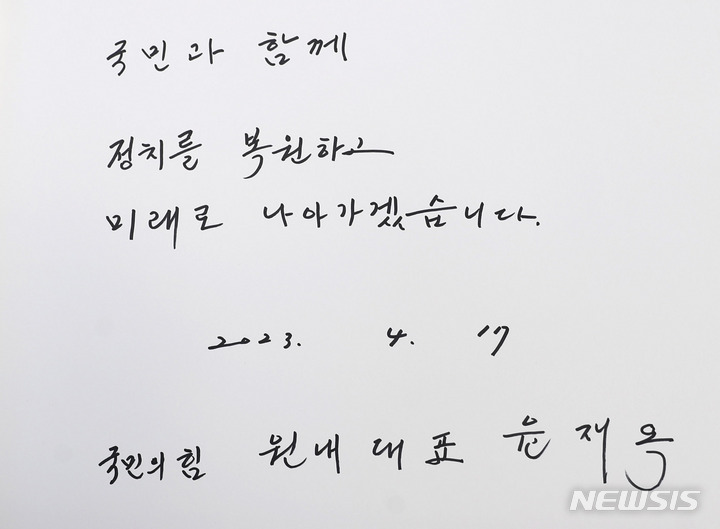 국민과 함께
정치를 복원하고
미래로 나아가겠습니다.
2023. 4. 17
국민의힘 원내대표 윤재옥
NEWSIS